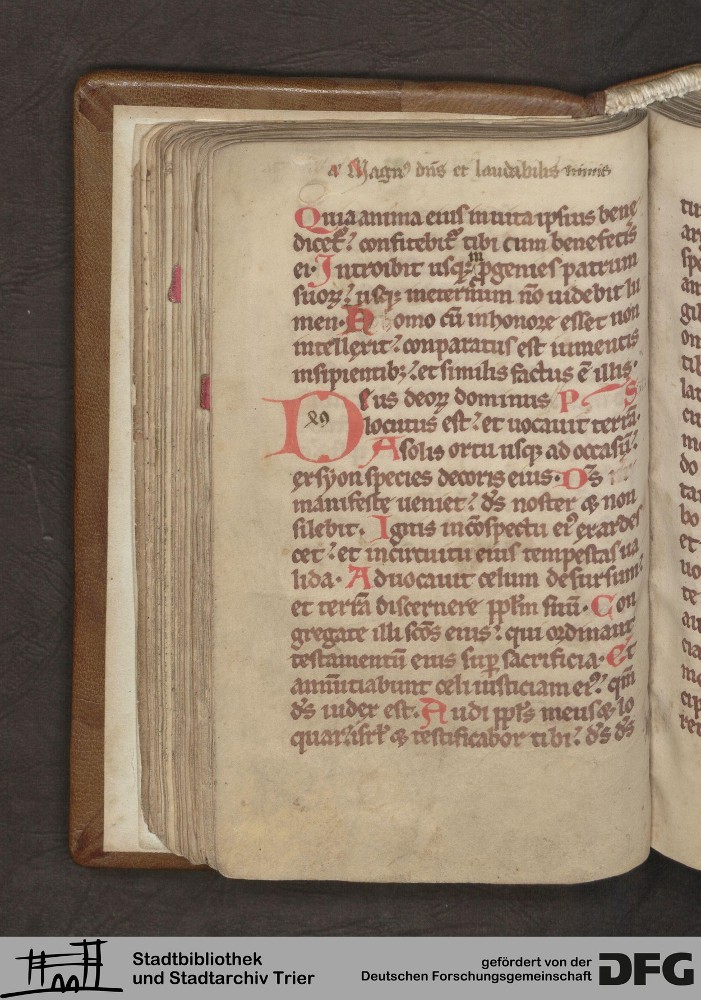 a Magnꝰ dn̄s et laudabilis nimis
Quia anima eius in uita ipsius bene
dicet᷑ : confitebit᷑ tibi cum benefec̄is
ei · Introibit usqꝫ in ꝓgenies patrum
suoꝝ : usqꝫ in et̄num nō uidebit lu
men · Homo cū in honore esset non
intellexit : conparatus est iumentis
insipientibꝫ : et similis factus ē illis ·
Deus deoꝝ dominus P S
locutus est : et uocauit terrā ·
A solis ortu usqꝫ ad occasū :
ex syon species decoris eius · D̄s
manifeste ueniet : d̄s noster & non
silebit · Ignis in cōspectu eiꝰ exardes
cet : et in circuitu eius tempestas ua
lida · Aduocauit celum desursum :
et terrā discernere pplm̄ suū · Con
gregate illi scōs eius : qui ordinant
testamentū eius suꝑ sacrificia · Et
annūtiabunt celi iusticiam eiꝰ : qm̄
d̄s iudex est · Audi ppl̄s meus & lo
quar : isrl̄ & testificabor tibi : d̄s d̄s
tu
ar
spe
an
gil
om
tib
lat
cu
me
do
tar
bo
et
uo
te
au
cia
me
cip
ret
Stadtbibliothek
und Stadtarchiv Trier
gefördert von der
Deutschen Forschungsgemeinschaft
DFG